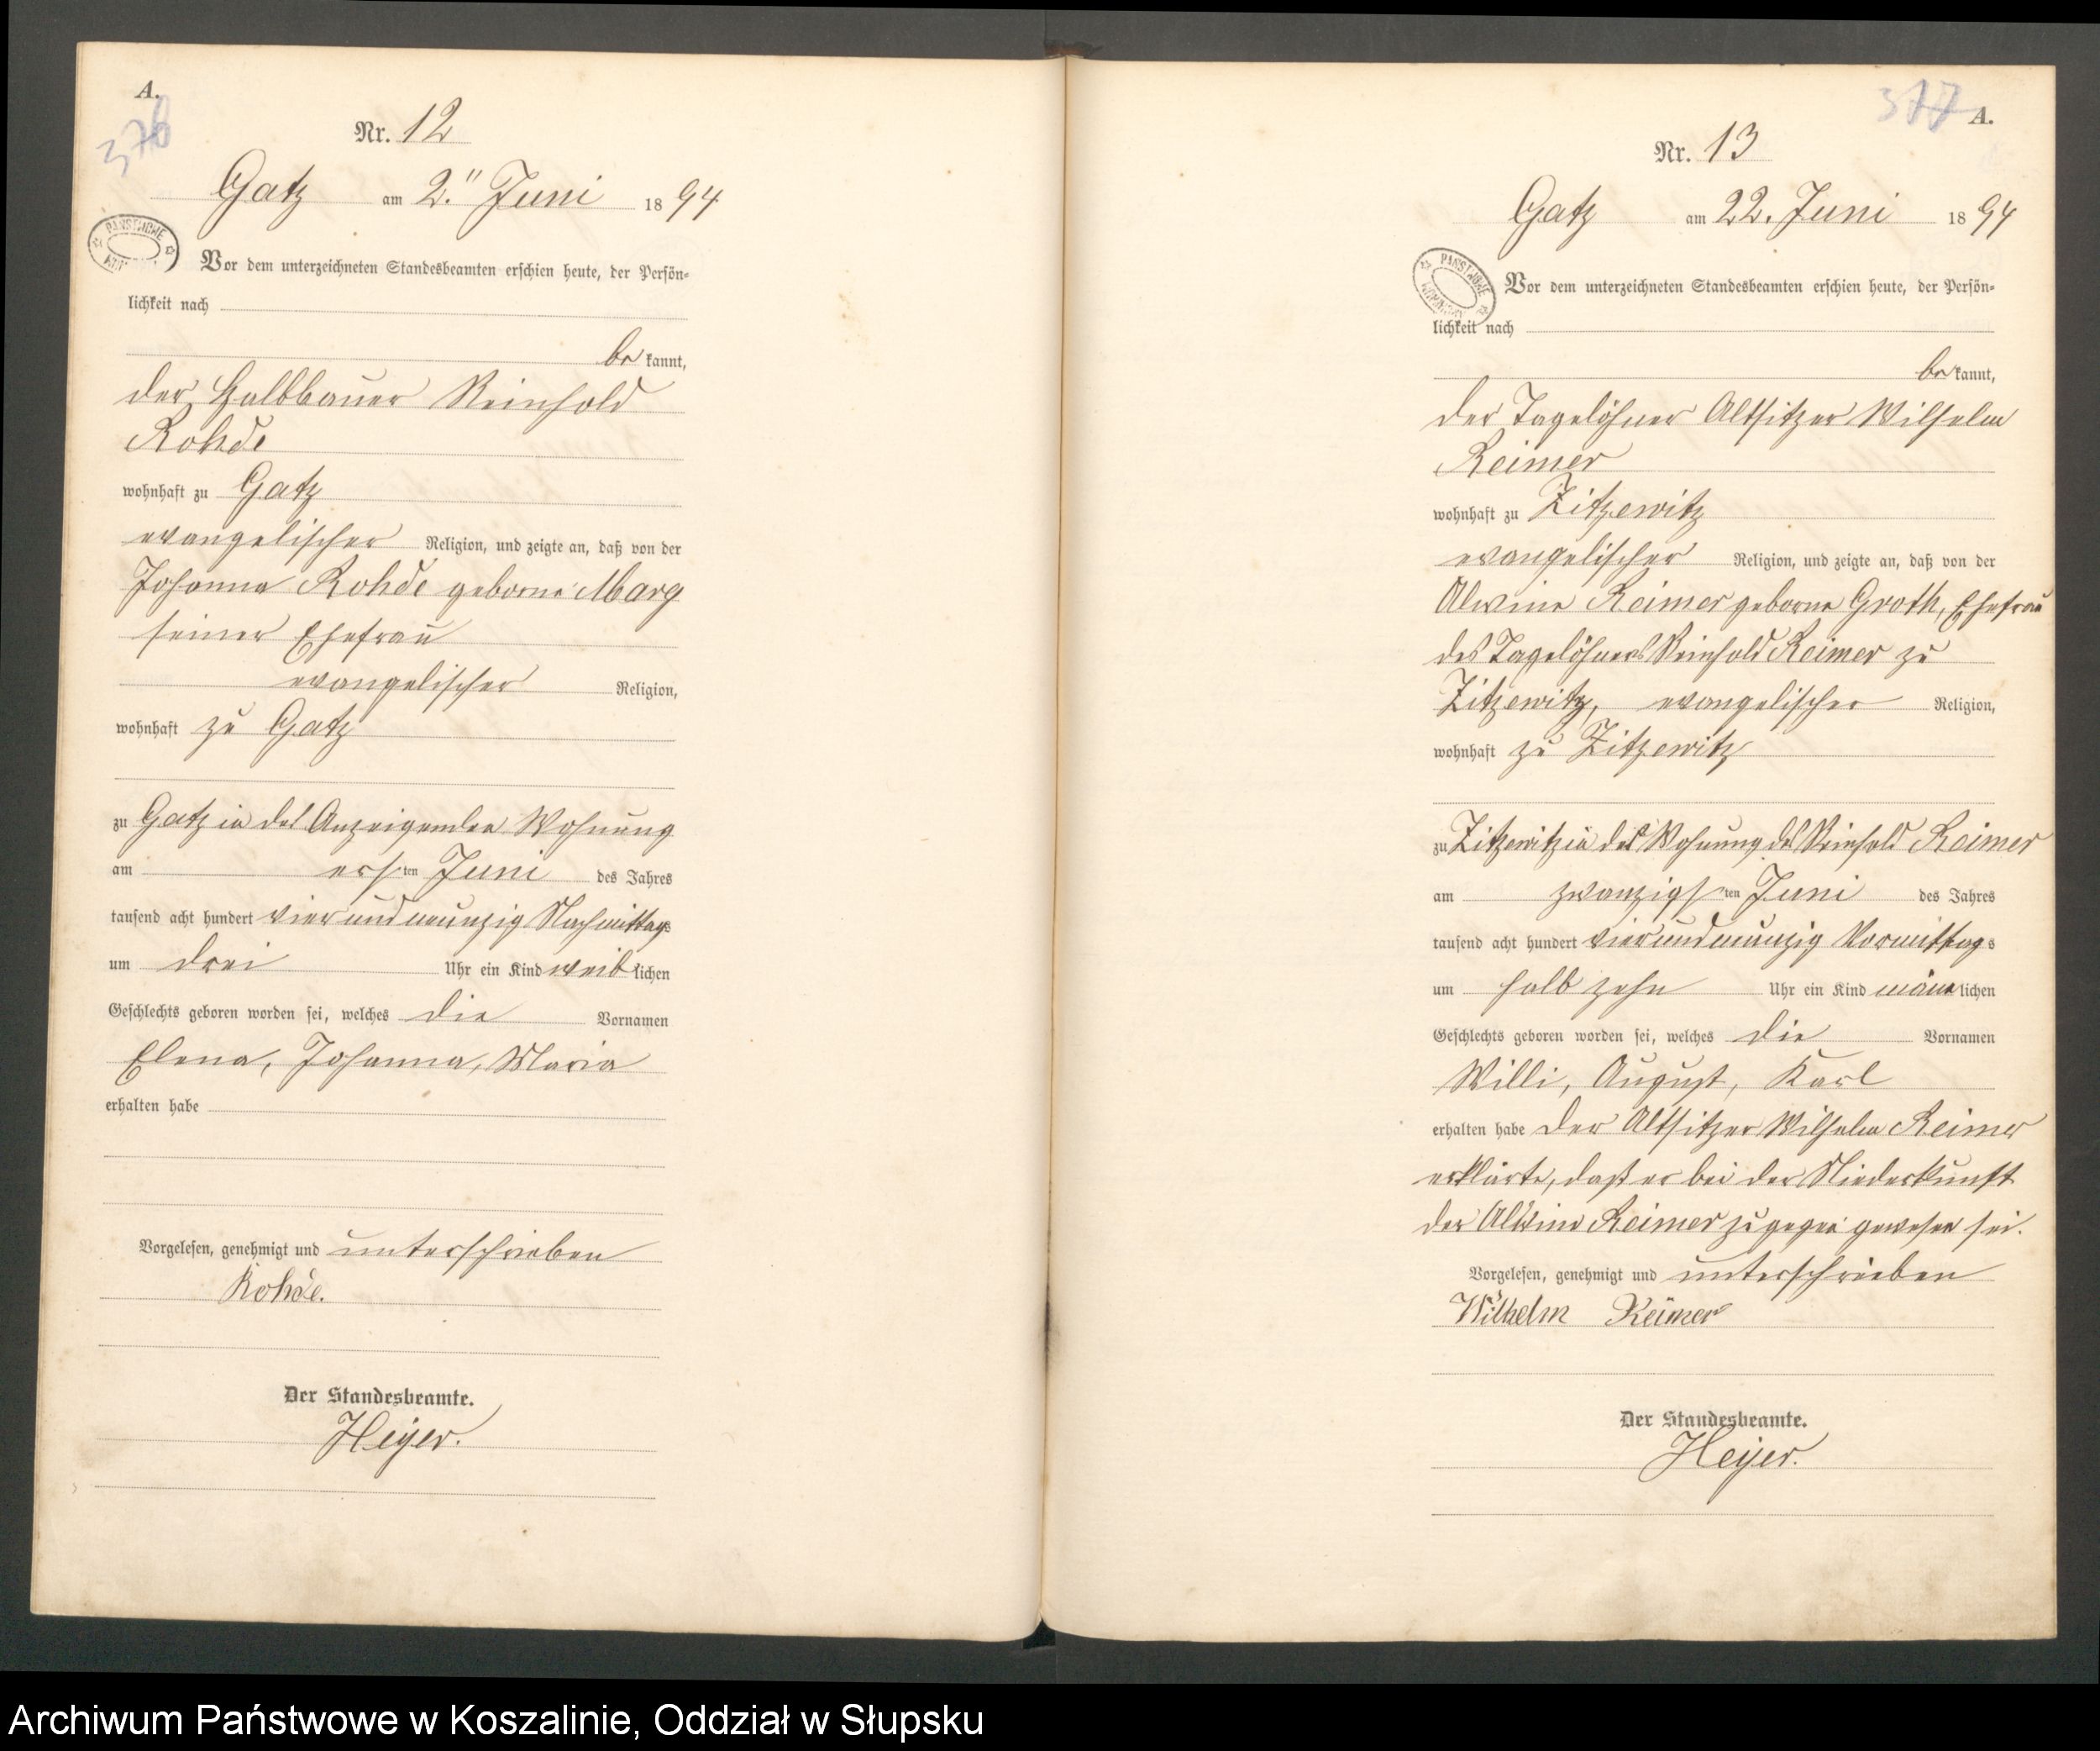 A.
376
Nr. 12
Gatz am 2. Juni 1894
PAŃSTWOWE
Vor dem unterzeichneten Standesbeamten erschien heute, der Persön-
lichkeit nach
be kannt,
der Halbbauer Reinhold
Rohde
wohnhaft zu Gatz
evangelischer Religion, und zeigte an, daß von der
Johanna Rohde geborne Marg
seiner Ehefrau
evangelischer Religion,
wohnhaft zu Gatz
zu Gatz in des Anzeigenden Wohnung
am ersten Juni des Jahres
tausend acht hundert vier und neunzig Nachmittags
um drei Uhr ein Kind weiblichen
Geschlechts geboren worden sei, welches die Vornamen
Elena, Johanna, Maria
erhalten habe
Vorgelesen, genehmigt und unterschrieben
Rohde.
Der Standesbeamte.
Heyer.
377
A.
Nr. 13
Gatz am 22. Juni 1894
PAŃSTWOWE
Vor dem unterzeichneten Standesbeamten erschien heute, der Persön-
lichkeit nach
be kannt,
der Tagelöhner Altsitzer Wilhelm
Reimer
wohnhaft zu Zitzewitz
evangelischer Religion, und zeigte an, daß von der
Alwine Reimer geborne Groth, Ehefrau
des Tagelöhners Reinhold Reimer zu
Zitzewitz, evangelischer Religion,
wohnhaft zu Zitzewitz
zu Zitzewitz in des Wohnung des Reinhold Reimer
am zwanzigsten Juni des Jahres
tausend acht hundert vier und neunzig Vormittags
um halb zehn Uhr ein Kind männlichen
Geschlechts geboren worden sei, welches die Vornamen
Willi, August, Karl
erhalten habe der Altsitzer Wilhelm Reimer
erklärte, daß er bei der Niederkunft
der Alwine Reimer zugegen gewesen sei.
Vorgelesen, genehmigt und unterschrieben
Wilhelm Reimer
Der Standesbeamte.
Heyer.
Archiwum Państwowe w Koszalinie, Oddział w Słupsku